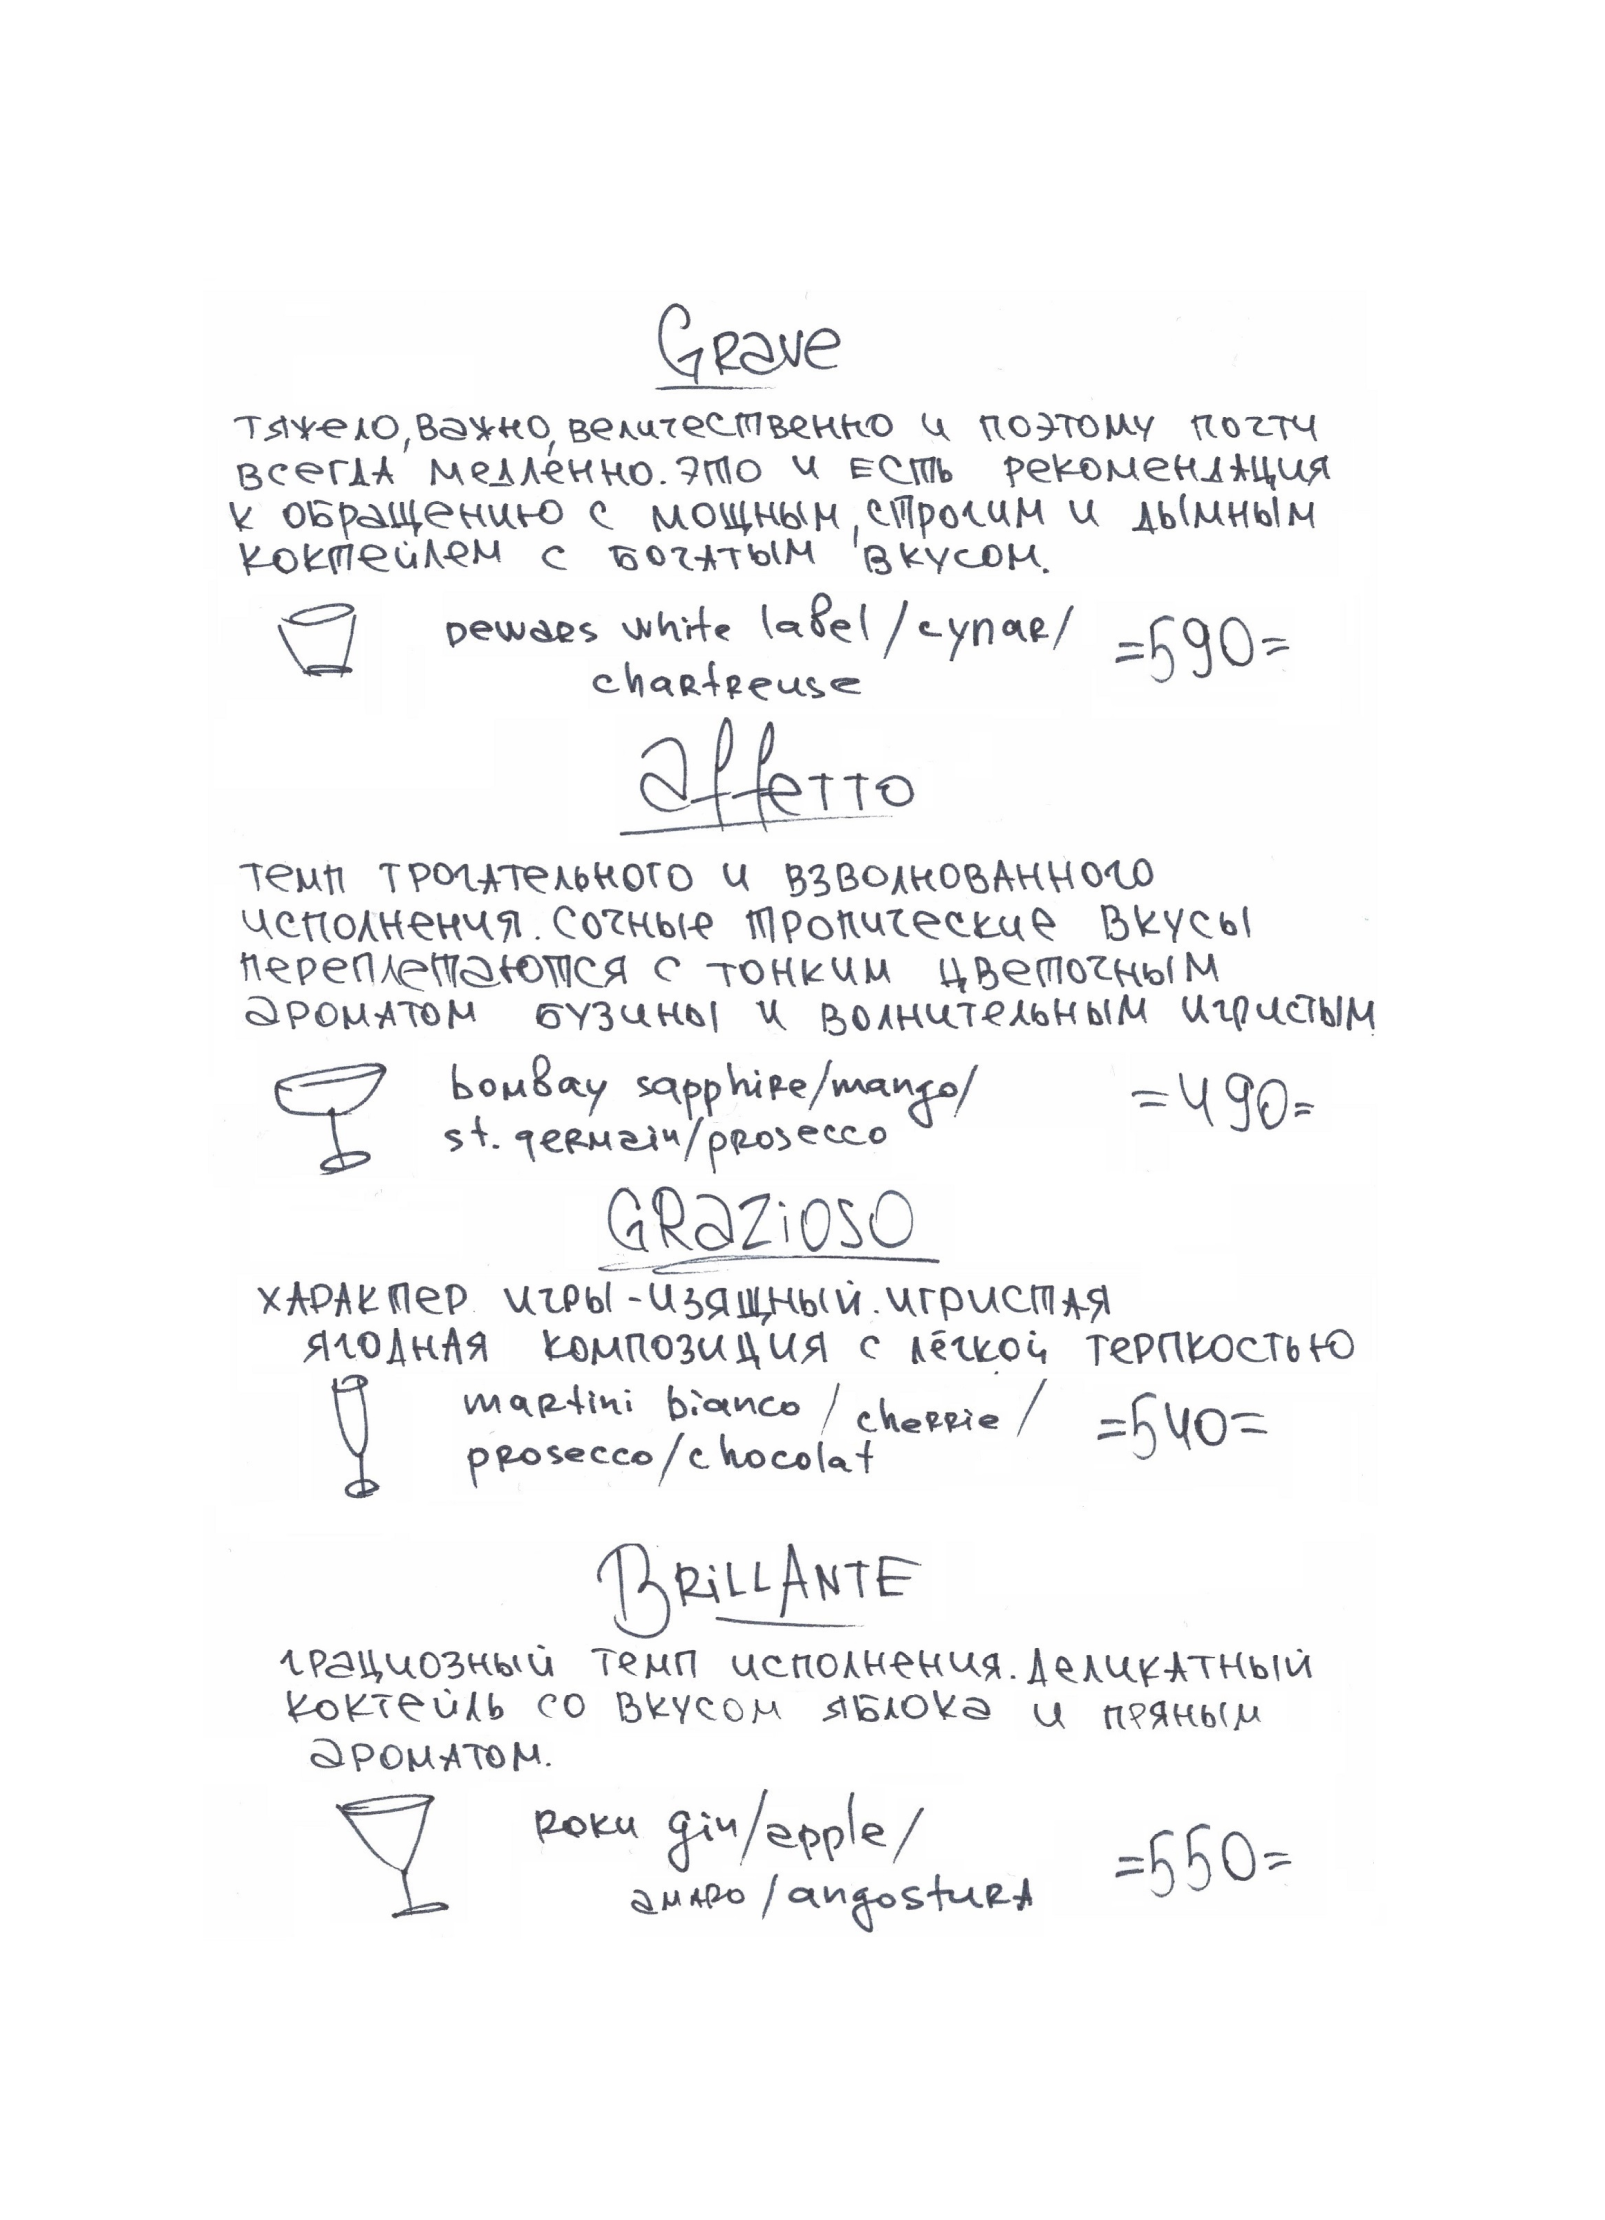 Grave
тяжело, важно, величественно и поэтому почти
всегда медленно. это и есть рекомендация
к обращению с мощным, строгим и дымным
коктейлем с богатым вкусом.
Dewars white label/cynar/ =590=
chartreuse
Affetto
темп трогательного и взволнованного
исполнения. сочные тропические вкусы
переплетаются с тонким цветочным
ароматом бузины и волнительным игристым
bombay sapphire/mango/ =490=
st. germain/prosecco
GRAZIOSO
характер игры - изящный. игристая
ягодная композиция с лёгкой терпкостью
martini bianco / cherrie / =540=
prosecco/chocolat
BRiLLANTE
грациозный темп исполнения. деликатный
коктейль со вкусом яблока и пряным
ароматом.
Roku gin/apple/ =550=
amaro/angostura